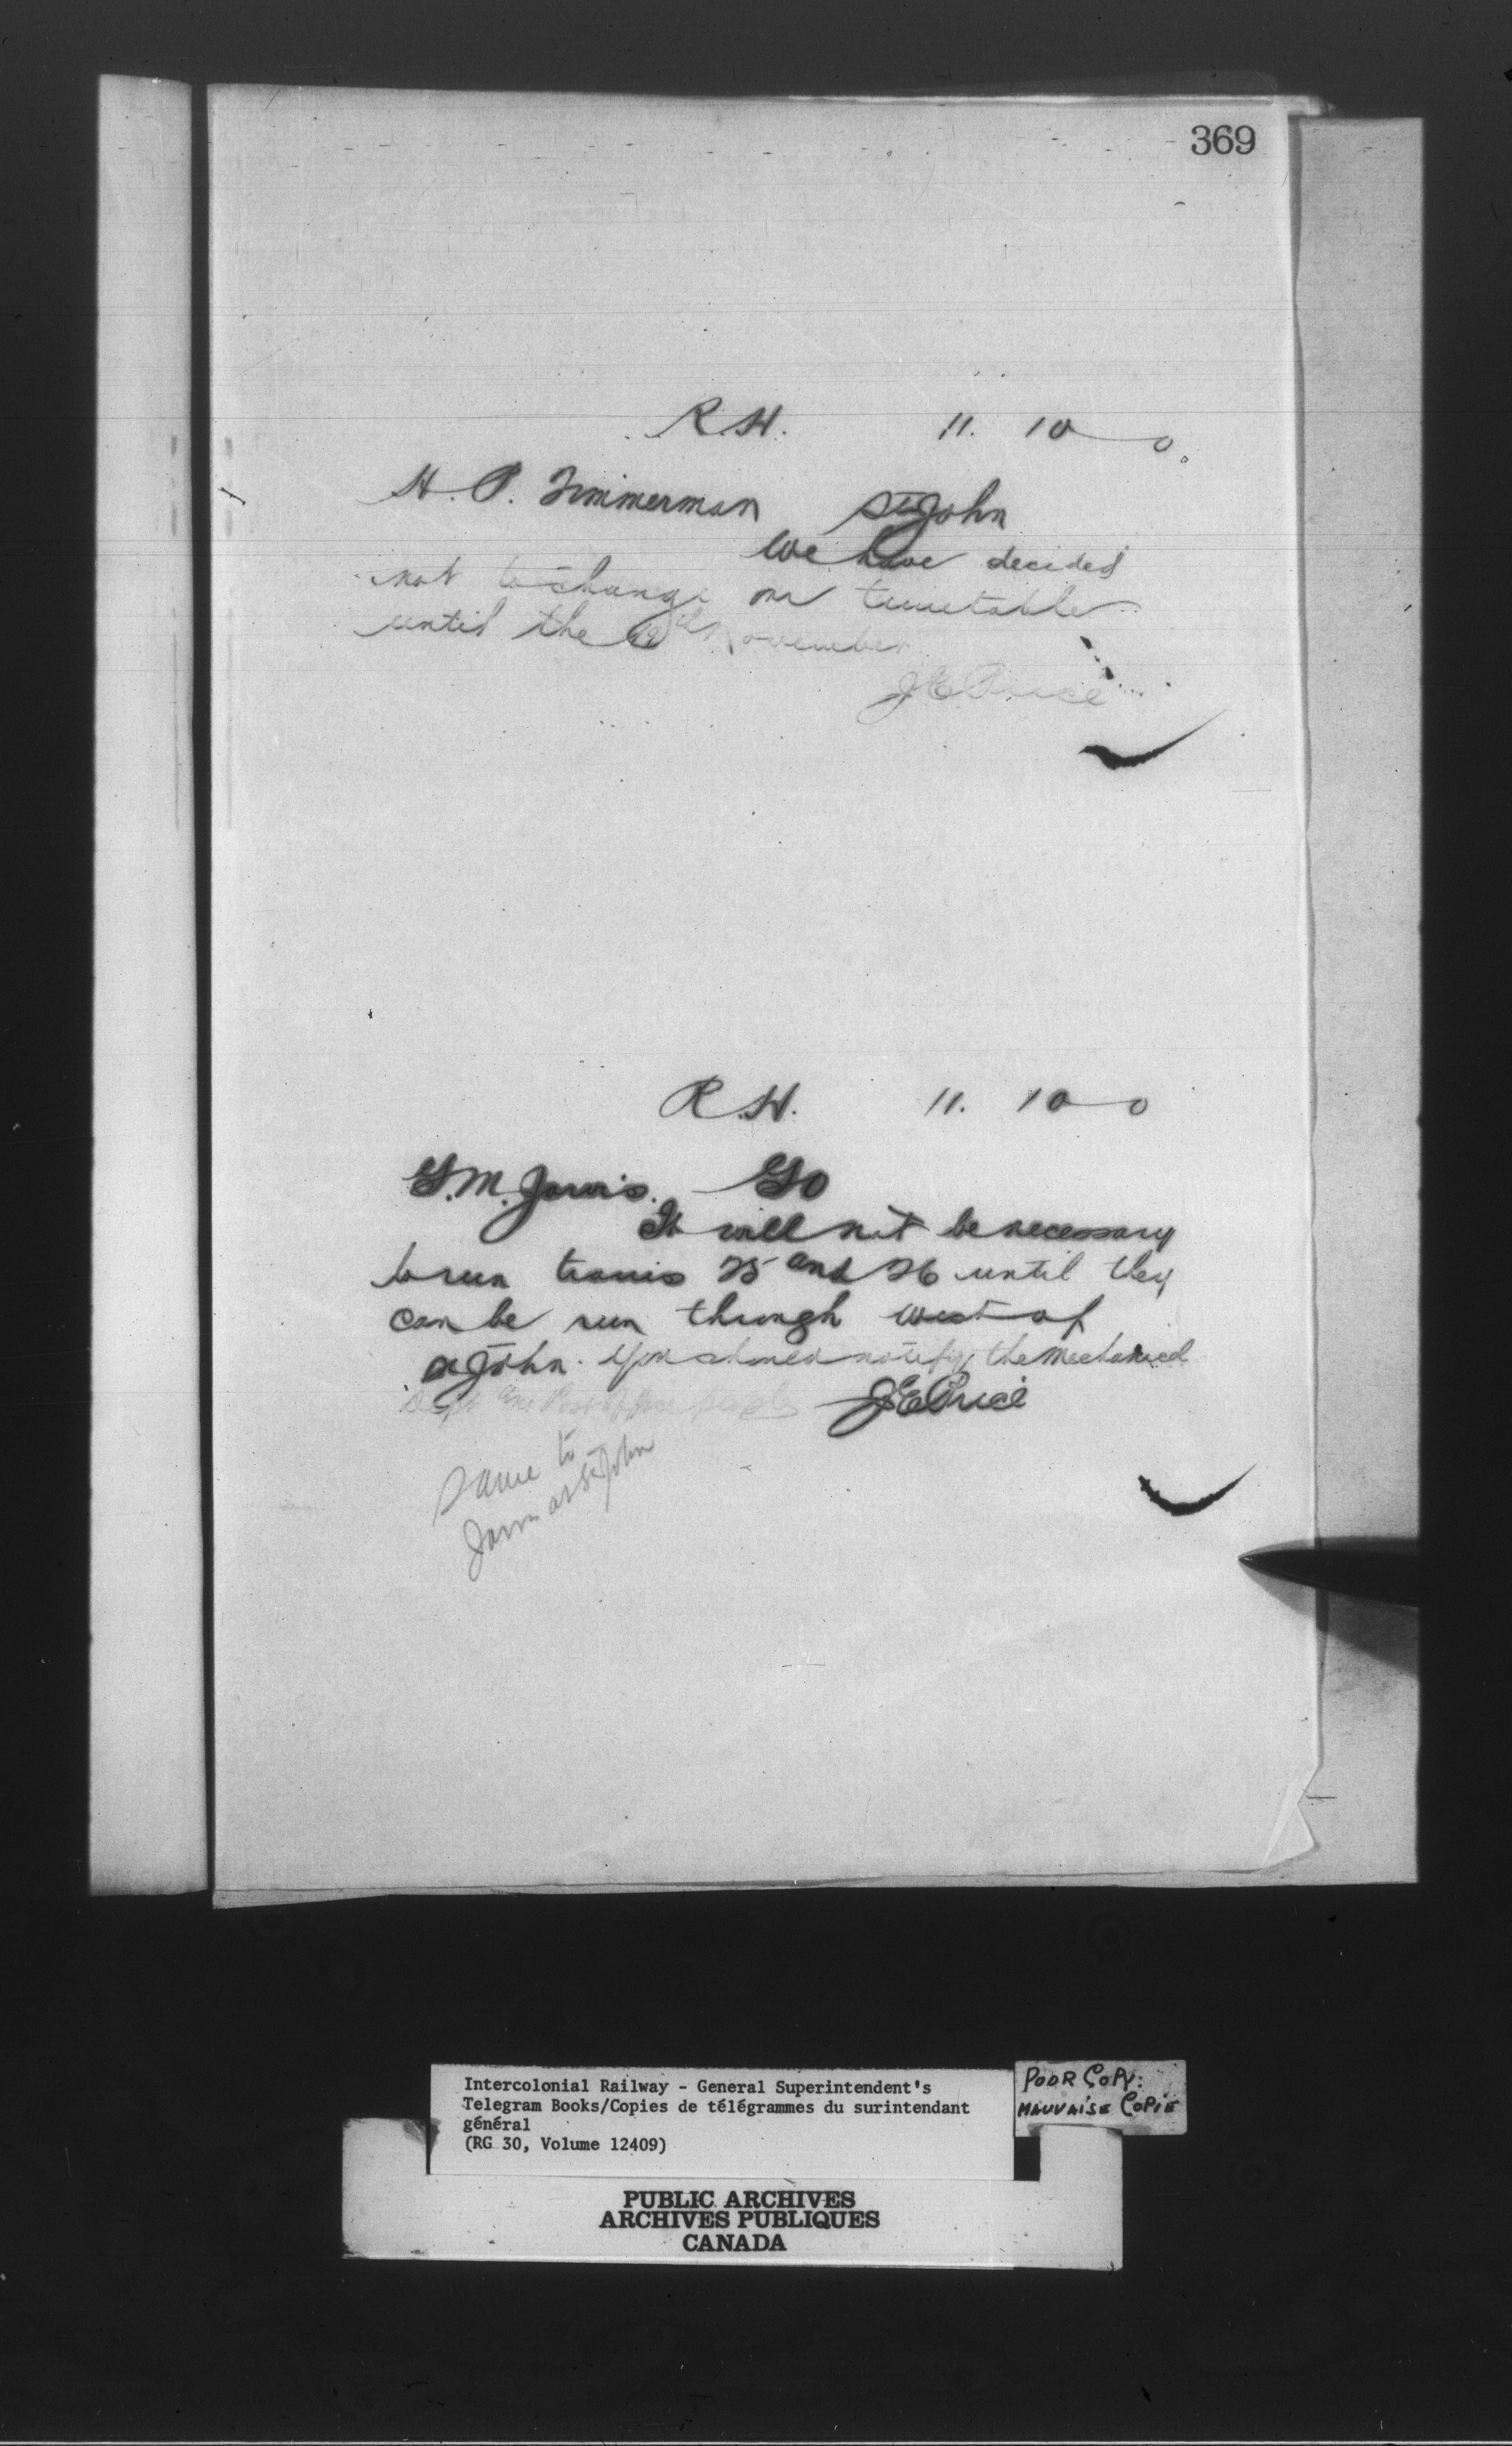 369
R.H. 11. 10 0
H. P. Timmerman St John
We have decided
not to change our timetable
until the November
J E Price
R.H. 11. 10 0
G. M. Jarvis. GO
It will not be necessary
to run trains 25 and 26 until they
can be run through west of
St John. You should notify the Mechanical
Dept and Post Office people J E Price
Same to
Jarvis at St John
Intercolonial Railway - General Superintendent's
Telegram Books/Copies de télégrammes du surintendant
général
(RG 30, Volume 12409)
POOR COPY:
MAUVAISE COPIE
PUBLIC ARCHIVES
ARCHIVES PUBLIQUES
CANADA